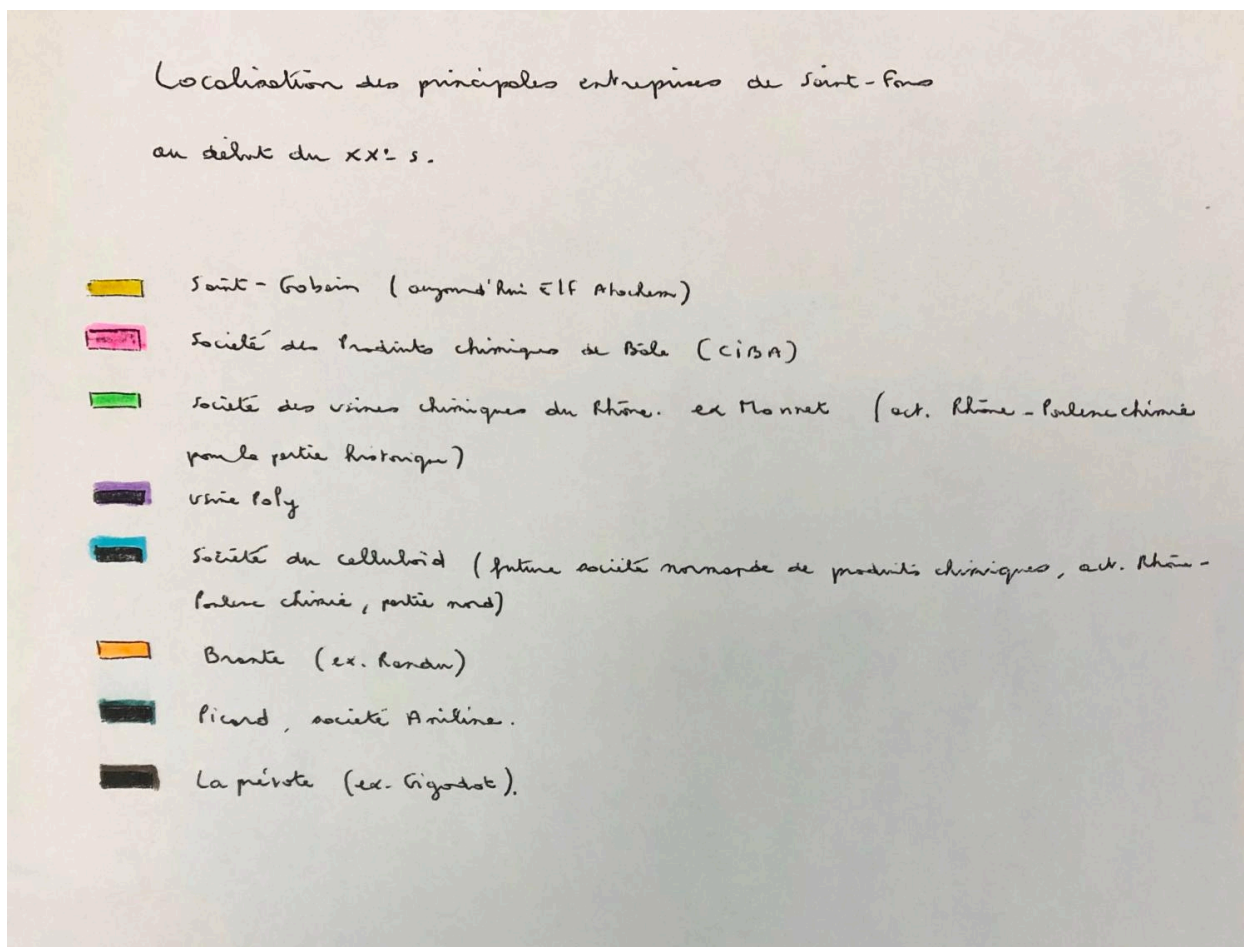 Localisation des principales entreprises de Saint-Fons
au début du XXe s.
Saint-Gobain (aujourd'hui Elf Atochem)
Société des Produits chimiques de Bâle (CIBA)
Société des usines chimiques du Rhône. ex Monnet (act. Rhône-Poulenc chimie
pour la partie historique)
usine Poly
Société du celluloïd (future société normande de produits chimiques, act. Rhône-
Poulenc chimie, partie nord)
(ex.
Picard, société Aniline.
La prévote (ex. Gigodot).